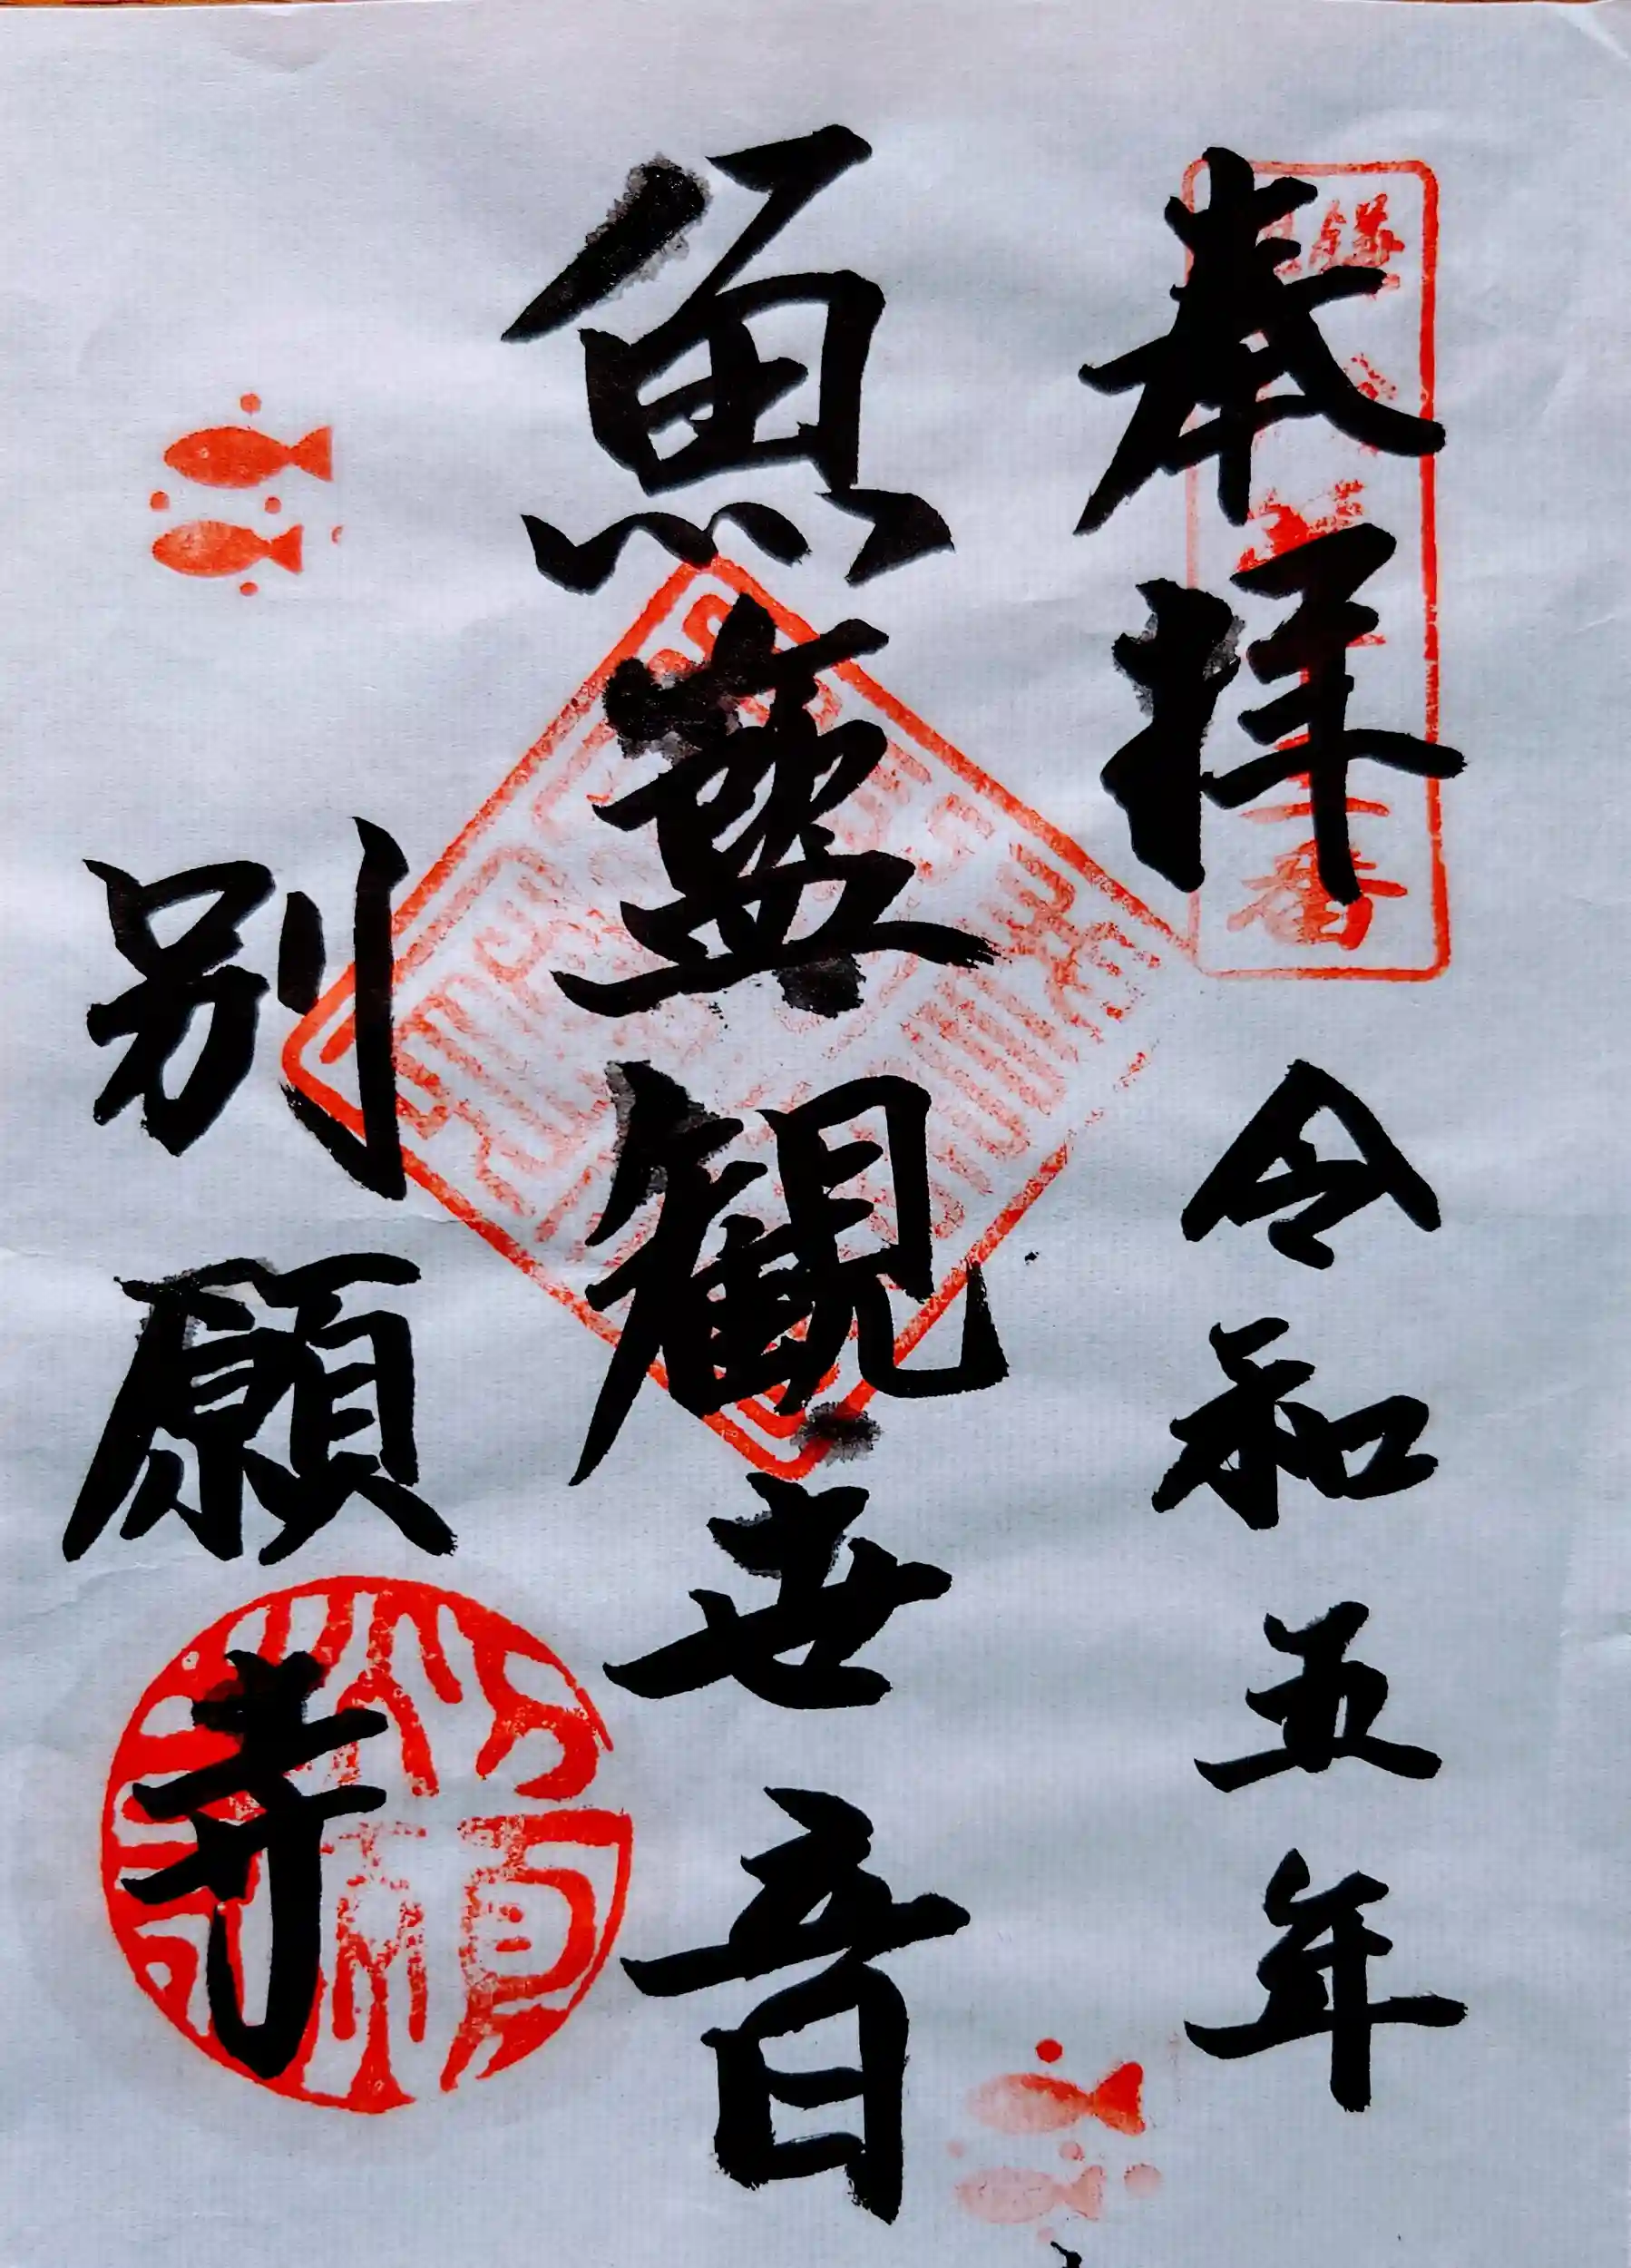 奉拝 令和五年
魚籃観世音
別願寺